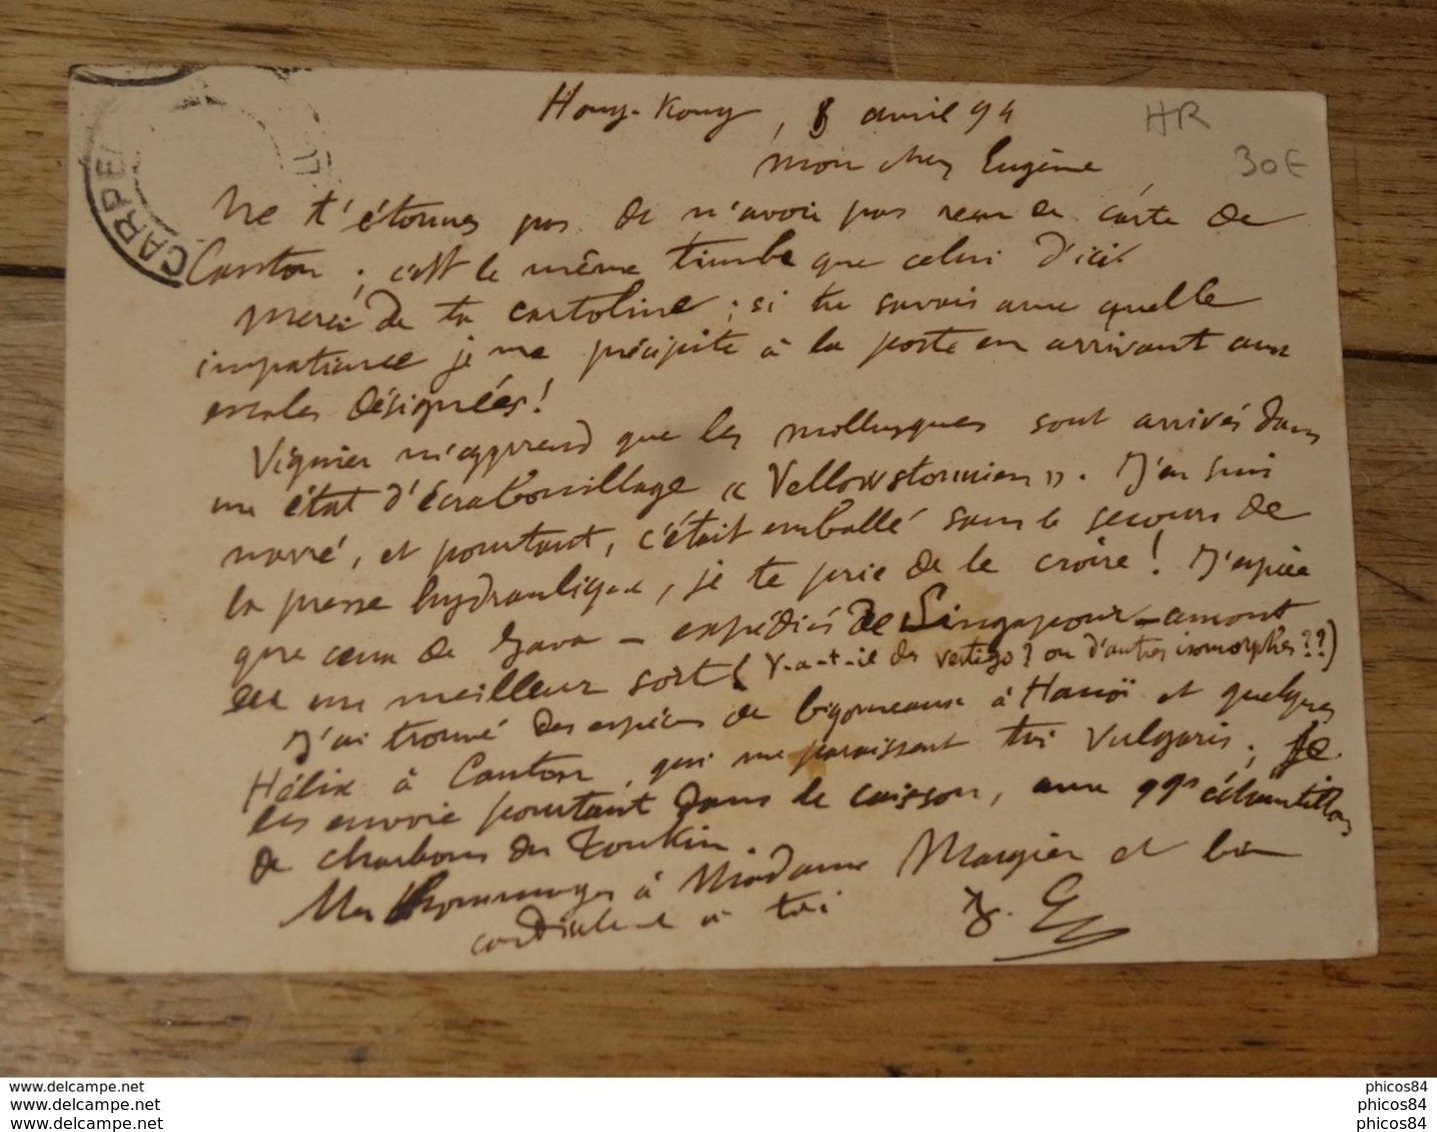 Hong-Kong, 8 avril 94
HR
30€
mon cher Eugène
Ne t'étonnes pas de n'avoir pas reçu de carte de
Canton ; c'est le même timbre que celui d'ici.
Merci de ta cartoline ; si tu savais avec quelle
impatience je me précipite à la poste en arrivant aux
escales désignées !
Viguier m'apprend que les mollusques sont arrivés dans
un état d'écrabouillage « Yellowstonnien ». J'en suis
navré, et pourtant, c'était emballé sans le secours de
la presse hydraulique, je te prie de le croire ! J'espère
que ceux de Java — expédiés de Singapour — auront
eu un meilleur sort (Y-a-t-il des vertigo ? ou d'autres isomorphes ??)
J'ai trouvé des espèces de bigorneaux à Hanoï et quelques
Hélix à Canton, qui me paraissent très vulgaris. Je
les envoie pourtant dans le caisson, aux échantillons
de charbons du Tonkin.
Mes hommages à Madame Margier et bien
cordialement à toi
CARPE
www.delcampe.net
www.delcampe.net
www.delcampe.net
phicos84
phicos84
phicos84